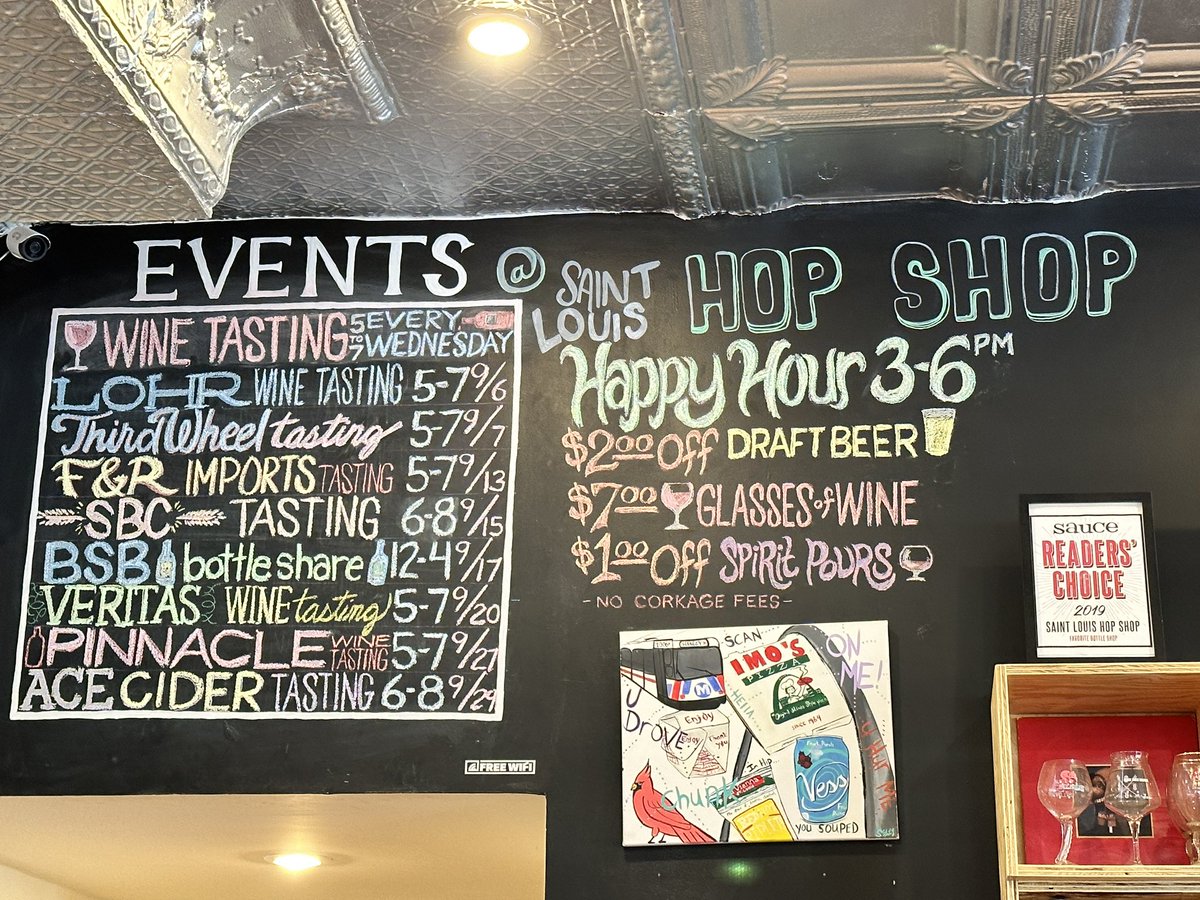 EVENTS @ SAINT LOUIS HOP SHOP
WINE TASTING 5 TO 7 EVERY WEDNESDAY
LOHR WINE TASTING 5-7 9/6
Third Wheel tasting 5-7 9/7
F&R IMPORTS TASTING 5-7 9/13
SBC TASTING 6-8 9/15
BSB bottle share 12-4 9/17
VERITAS WINE tasting 5-7 9/20
PINNACLE WINE TASTING 5-7 9/27
ACE CIDER TASTING 6-8 9/29
FREE WIFI
Happy Hour 3-6 PM
$2.00 Off DRAFT BEER
$7.00 GLASSES of WINE
$1.00 Off SPIRIT POURS
- NO CORKAGE FEES -
sauce
READERS'
CHOICE
2019
SAINT LOUIS HOP SHOP
FAVORITE BOTTLE SHOP
SCAN
IMO'S
PIZZA
since 1964
ON
ME!
U
DROVE
M
Enjoy
Enjoy
Thank you
HELLA...
In My
Chupt
Vess
YOU SOUPED
U HUT ME